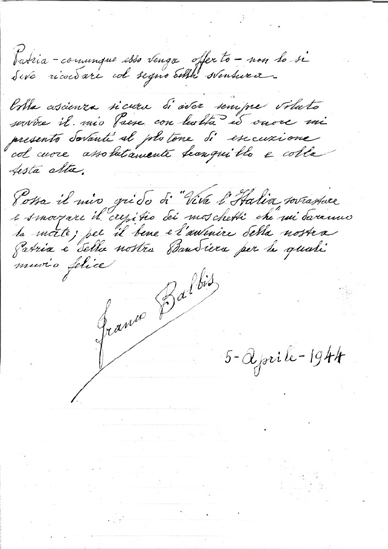 Patria - comunque esso venga offerto - non lo si
deve ricordare col segno della sventura.
Colla coscienza sicura di aver sempre voluto
servire il mio Paese con lealtà ed onore mi
presento davanti al plotone di esecuzione
col cuore assolutamente tranquillo e colla
testa alta.
Possa il mio grido di "Viva l'Italia" sovrastare
e smorzare il crepitio dei moschetti che mi daranno
la morte; per il bene e l'avvenire della nostra
Patria e della nostra Bandiera per le quali
muoio felice
Franco Balbis
5-Aprile-1944